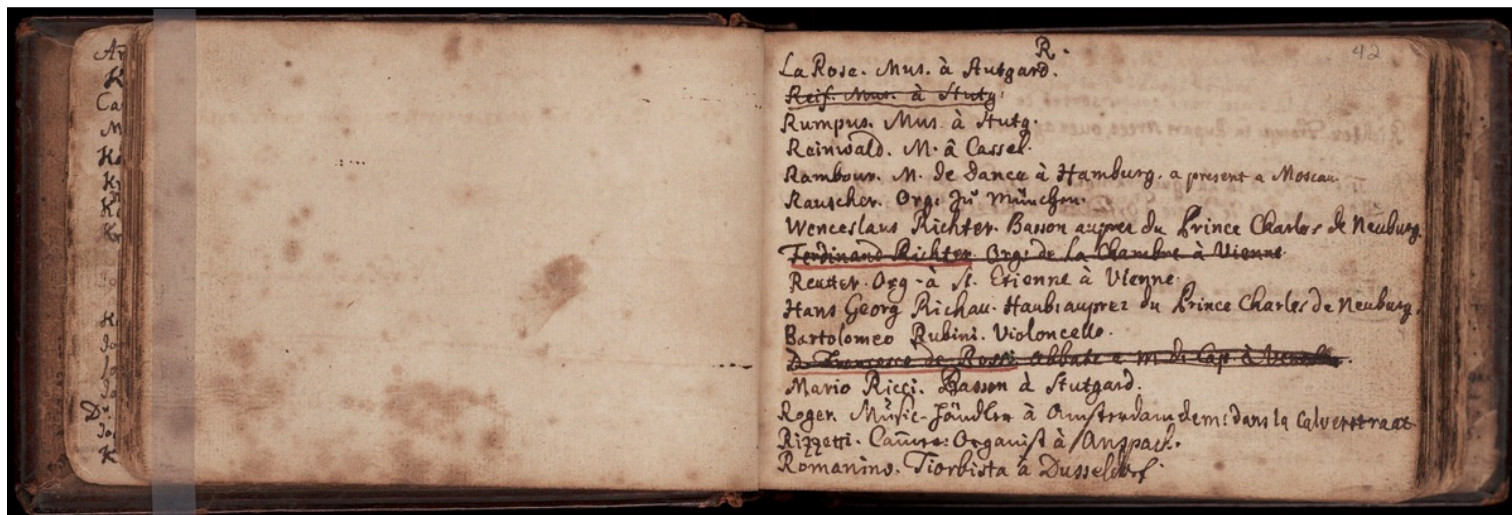 Ar
K
Car
M
Ha
Kr
K
H
Jo
Jo
D.r
Jo
K
R.
42
La Rose. Mus. à Stutgard.
Reif. Mus. à Stutg.
Rumpus. Mus. à Stutg.
Reinwald. M. â Cassel.
Rambour. M. de dance à Hamburg. a present a Moscau.
Rauscher. Org: zu München.
Wenceslaus Richter. Basson auprez du Prince Charles de Neuburg.
Ferdinand Richter. Org: de la Chambre à Vienne.
Reutter. Org. à St. Etienne à Vienne.
Hans Georg Richau. Haub: auprez du Prince Charles de Neuburg.
Bartolomeo Rubini. Violoncello.
D. Francesco de Rossi abbate e m. di Cap. à Venetia.
Mario Ricci. Basson à Stutgard.
Roger. Music-Händler à Amsterdam dem: dans la Calverstraat.
Rizzetti. Cam̄er: Organist à Anspach.
Romanino. Tiorbista à Dusseldorf.